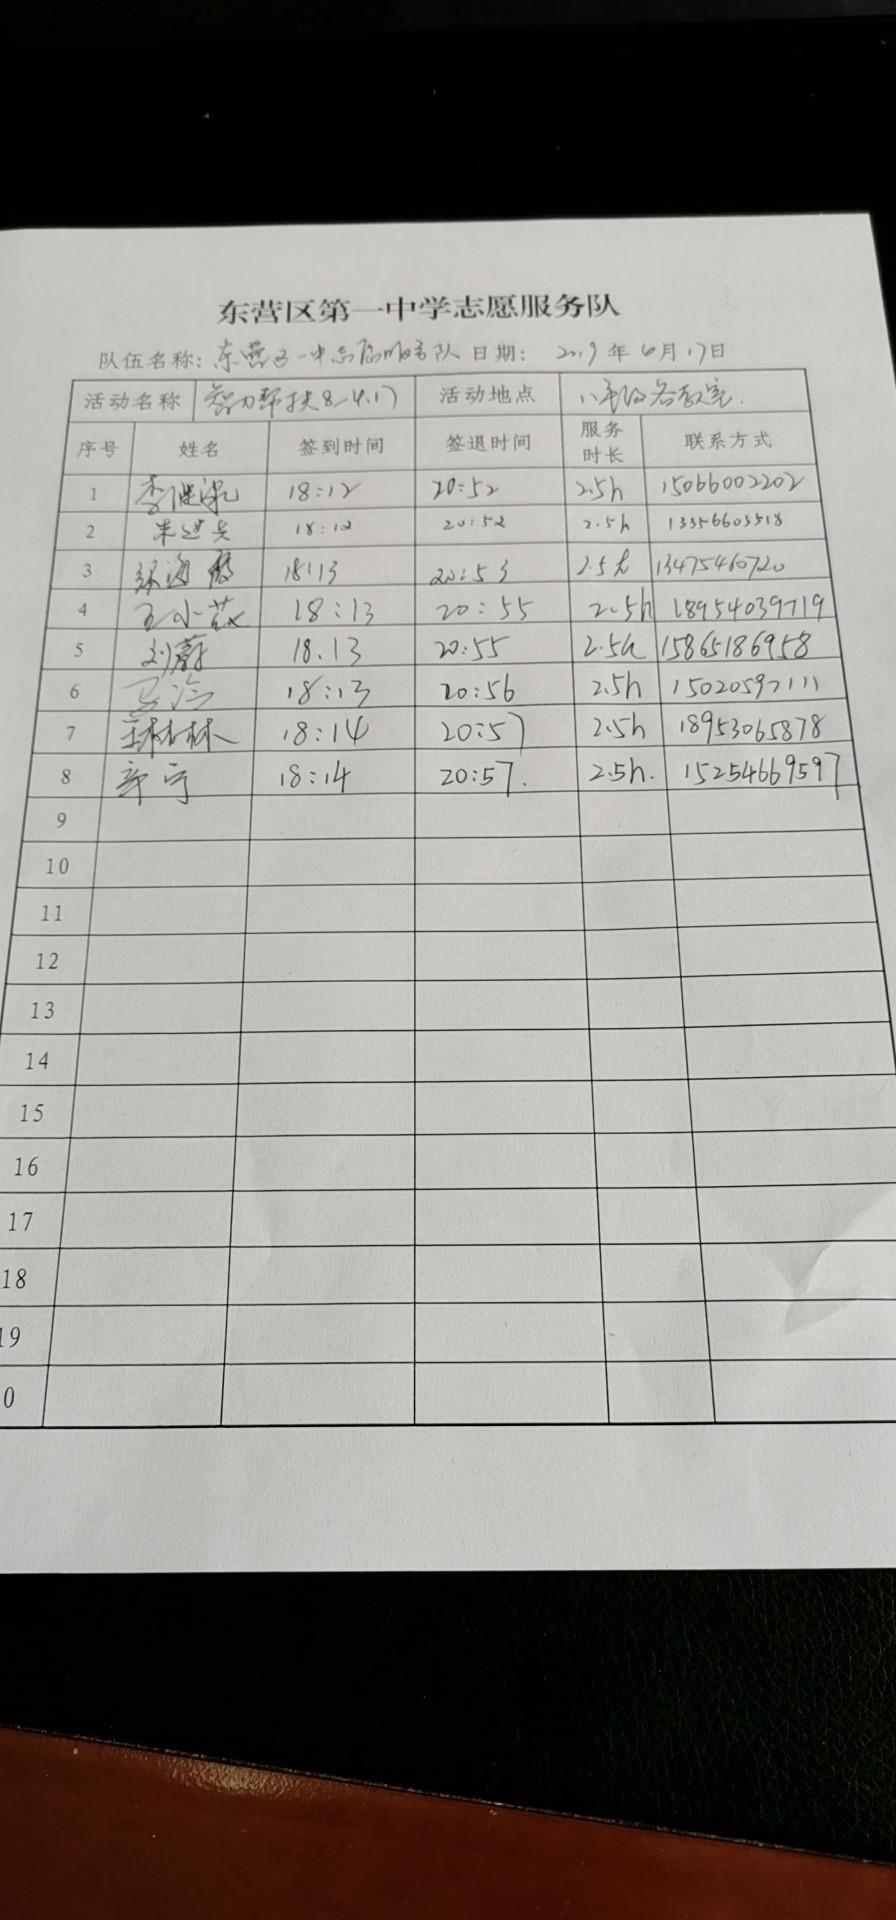 东营区第一中学志愿服务队
队伍名称: 东营区一中志愿服务队 日期: 2019年6月17日
活动名称 智力帮扶 活动地点 各教室.
序号 姓名 签到时间 签退时间 服务时长 联系方式
1 18:12 20:52 2.5h 15066002202
2 18:12 20:52 2.5h 13356603518
3 18:13 20:53 2.5h 13475460720
4 王小 18:13 20:55 2.5h 18954039719
5 刘蔚 18.13 20:55 2.5h 15865186958
6 18:13 20:56 2.5h 15020597111
7 18:14 20:57 2.5h 18953065878
8 18:14 20:57. 2.5h. 15254669597
9
10
11
12
13
14
15
16
17
18
19
0